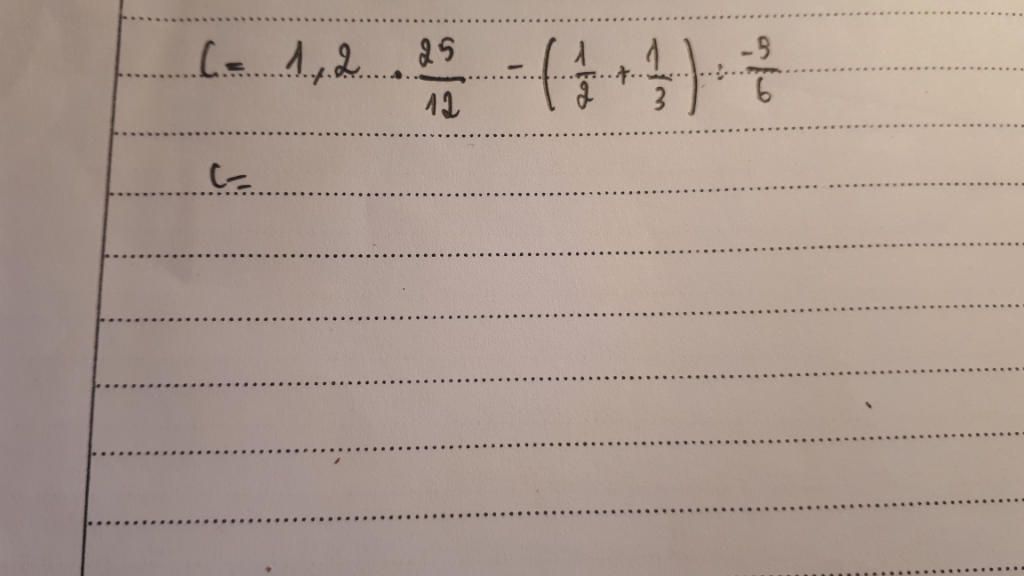 C = 1,2 . 25/12 - (1/2 + 1/3) : -9/6
C =